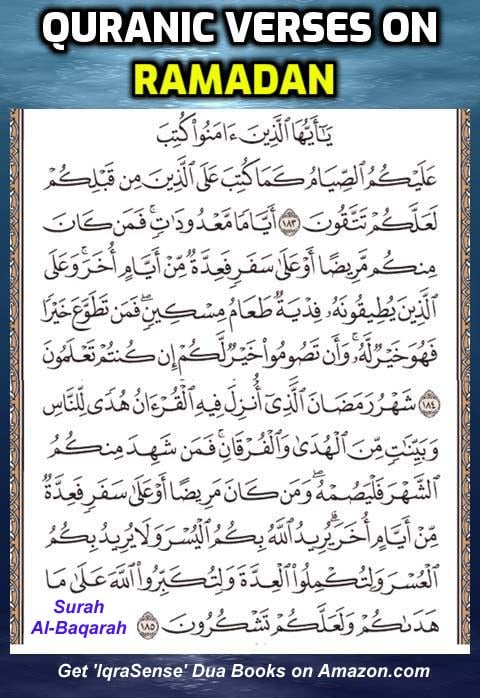 QURANIC VERSES ON
RAMADAN
يَٰٓأَيُّهَا ٱلَّذِينَ ءَامَنُوا۟ كُتِبَ
عَلَيْكُمُ ٱلصِّيَامُ كَمَا كُتِبَ عَلَى ٱلَّذِينَ مِن قَبْلِكُمْ
لَعَلَّكُمْ تَتَّقُونَ ١٨٣ أَيَّامًا مَّعْدُودَٰتٍ ۚ فَمَن كَانَ
مِنكُم مَّرِيضًا أَوْ عَلَىٰ سَفَرٍ فَعِدَّةٌ مِّنْ أَيَّامٍ أُخَرَ ۚ وَعَلَى
ٱلَّذِينَ يُطِيقُونَهُۥ فِدْيَةٌ طَعَامُ مِسْكِينٍ ۖ فَمَن تَطَوَّعَ خَيْرًا
فَهُوَ خَيْرٌ لَّهُۥ ۚ وَأَن تَصُومُوا۟ خَيْرٌ لَّكُمْ إِن كُنتُمْ تَعْلَمُونَ
١٨٤ شَهْرُ رَمَضَانَ ٱلَّذِىٓ أُنزِلَ فِيهِ ٱلْقُرْءَانُ هُدًى لِّلنَّاسِ
وَبَيِّنَٰتٍ مِّنَ ٱلْهُدَىٰ وَٱلْفُرْقَانِ ۚ فَمَن شَهِدَ مِنكُمُ
ٱلشَّهْرَ فَلْيَصُمْهُ ۖ وَمَن كَانَ مَرِيضًا أَوْ عَلَىٰ سَفَرٍ فَعِدَّةٌ
مِّنْ أَيَّامٍ أُخَرَ ۗ يُرِيدُ ٱللَّهُ بِكُمُ ٱلْيُسْرَ وَلَا يُرِيدُ بِكُمُ
ٱلْعُسْرَ وَلِتُكْمِلُوا۟ ٱلْعِدَّةَ وَلِتُكَبِّرُوا۟ ٱللَّهَ عَلَىٰ مَا
هَدَىٰكُمْ وَلَعَلَّكُمْ تَشْكُرُونَ ١٨٥
Surah
Al-Baqarah
Get 'IqraSense' Dua Books on Amazon.com